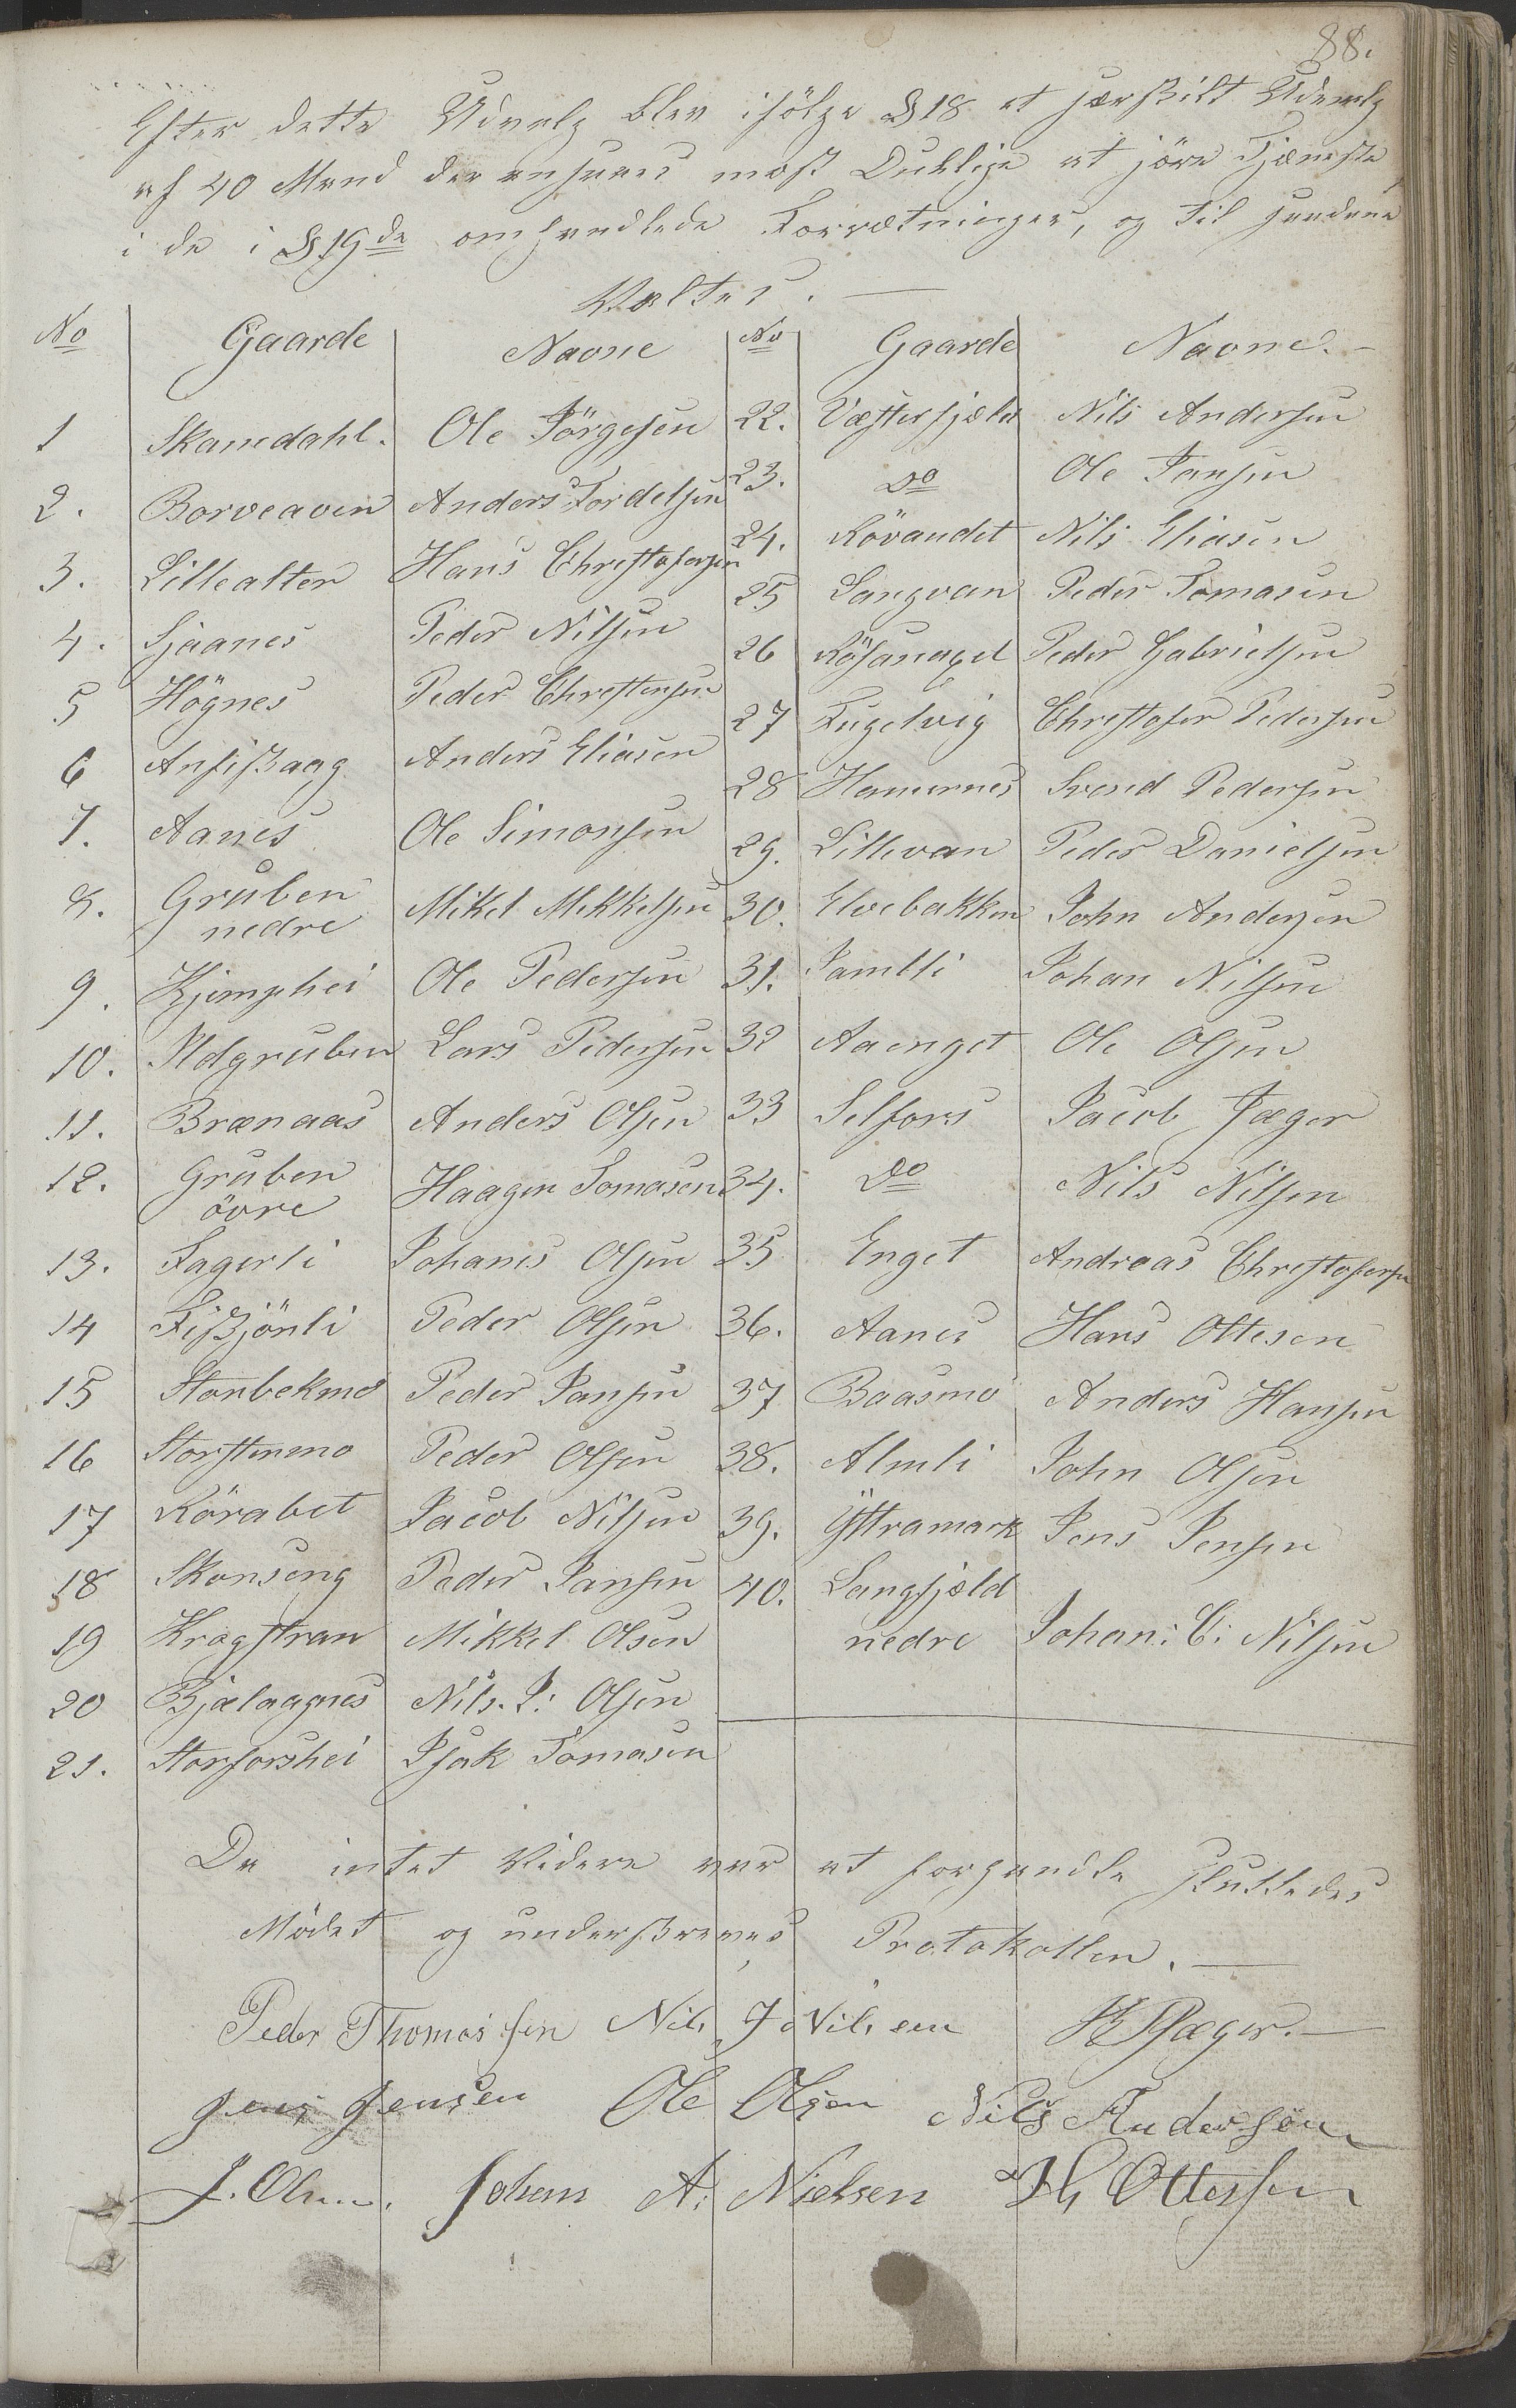 88.
Efter dette Udvalg blev ifölge § 18 et særskilt Udvalg
af 40 Mand der ansaaes mest Duelige at jöre Tjæneste
i de i § 19de omhandlede Forrætninger, og til saadane
Valtes. —
No Gaarde Navne No Gaarde Navne. —
1 Skamdahl. Ole Jörgesen 22. Væsterfjeld Nils Andersen
2. Borveaven Anders Tordelsen 23. Do Ole Jansen
3. Lillealten Hans Chrestofersen 24. Rövandet Nils Eliasen
4. Sjaanes Peder Nilsen 25 Langvan Peder Tomasen
5 Högnes Peder Chrestensen 26 Rösanaget Peder Gabrielsen
6 Ansiskaag Anders Eliasen 27 Fugelvig Chrestofer Pedersen
7. Aanes Ole Simonsen 28 Hamernes Svend Pedersen
8. Gruben nedre Mikel Mikkelsen 29. Lillevan Peder Danielsen
9. Kjemphei Ole Pedersen 30. Elvebakken John Andersen
10. Ildgruben Lars Pedersen 31. Jamtli Johan Nilsen
11. Brænaas Anders Olsen 32 Aaenget Ole Olsen
12. Gruben övre Haagen Tomasen 33 Selfors Jacob Jæger
13. Fagerli Johanes Olsen 34. Do Nils Nilsen
14 Fiskjönli Peder Olsen 35 Enget Andreas Chrestofersen
15 Storbekmo Peder Jansen 36. Aanes Hans Ottesen
16 Storstenmo Peder Olsen 37 Baasmo Anders Hansen
17 Rörabet Jacob Nilsen 38. Almli John Olsen
18 Skonseng Peder Jansen 39. Yttramark Jens Jensen
19 Kragstran Mikkel Olsen 40. Langfjeld nedre Johan: C: Nilsen
20 Bjælaagnes Nils. J: Olsen
21. Storforshei Isak Tomasen
Da intet Videre var at forhandle sluttedes
Mödet og underskreves Protokollen. —
Peder Thomassen Nils J Nilsen Jæger. —
Jens Jensen Ole Olsen Nils Andersen
J. Olsen. Johan A: Nielsen H Ottessen